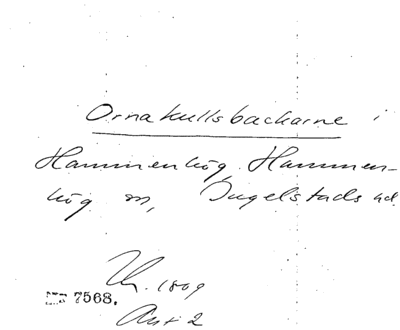 Ornakullsbackarne i
Hammenhög Hammen-
hög sn, Ingelstads hd
Th. 1809
7568.
Akt 2